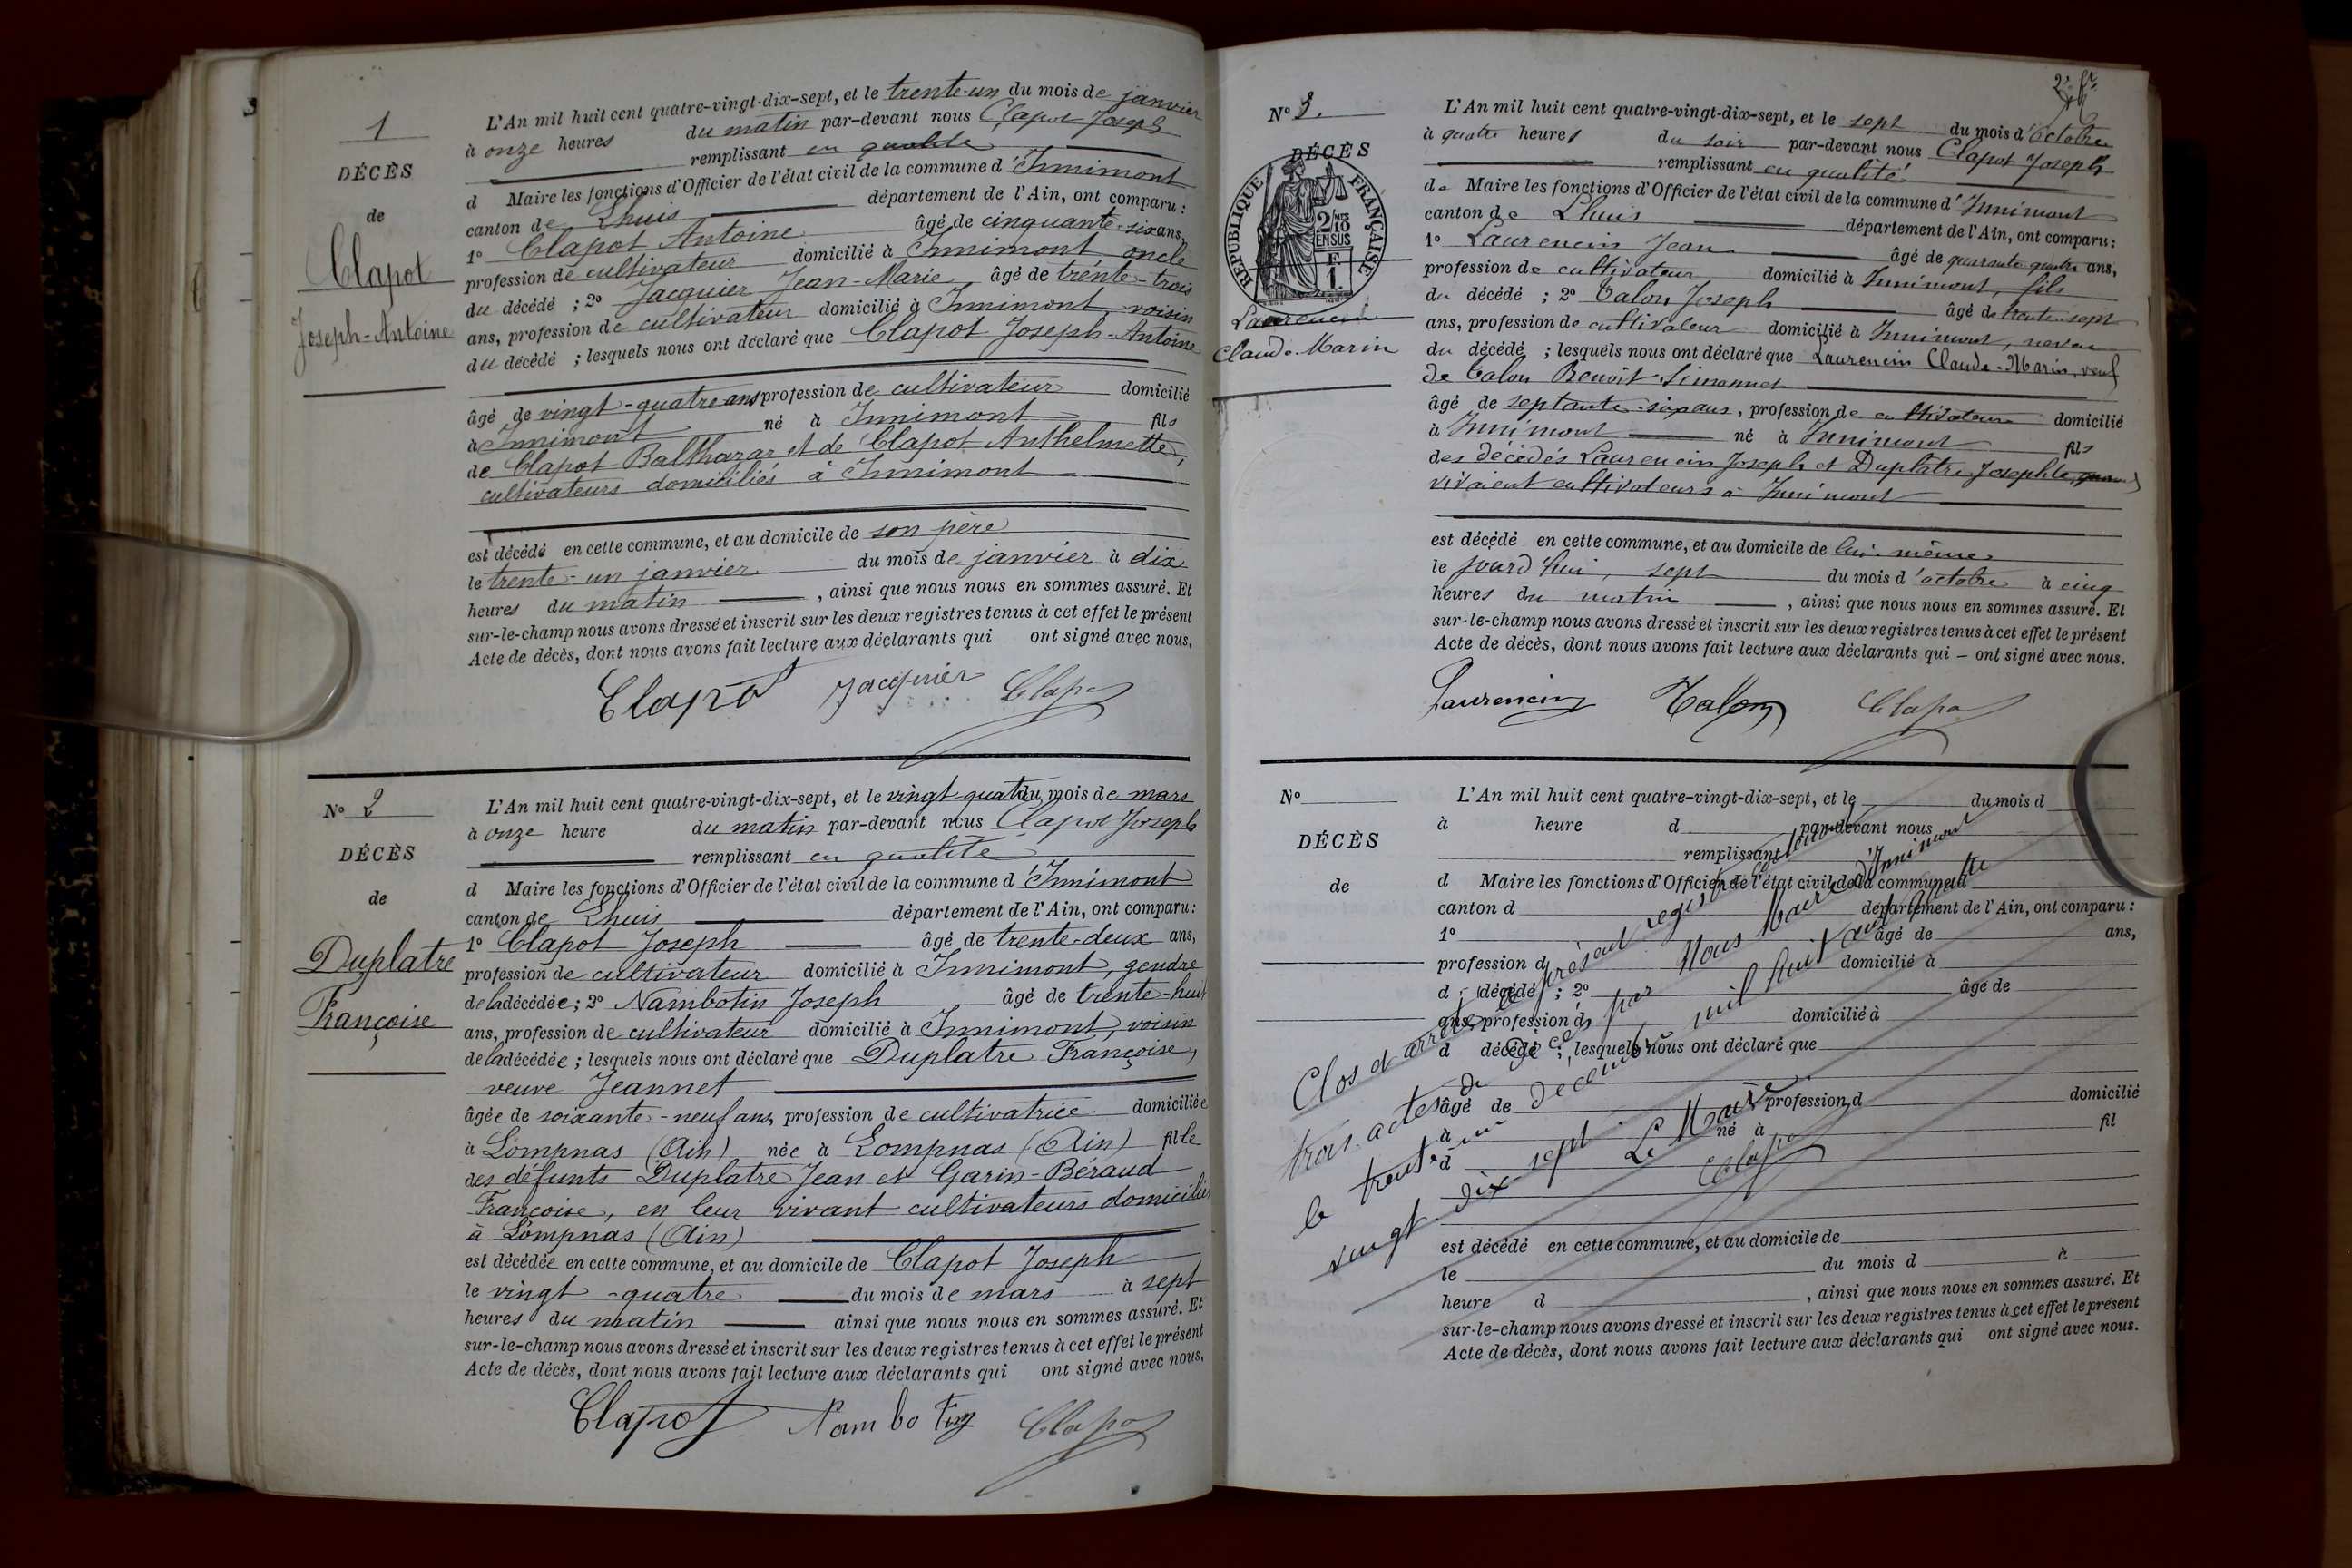 1
DÉCÈS
de
Clapot
Joseph-Antoine
L'An mil huit cent quatre-vingt-dix-sept, et le trente-un du mois de janvier
à onze heures du matin par-devant nous Clapot Joseph
remplissant en qualité
d Maire les fonctions d'Officier de l'état civil de la commune d'Innimont
canton de Lhuis département de l'Ain, ont comparu :
1° Clapot Antoine âgé de cinquante-six ans,
profession de cultivateur domicilié à Innimont oncle
du décédé ; 2° Jacquier Jean-Marie âgé de trente-trois
ans, profession de cultivateur domicilié à Innimont, voisin
du décédé ; lesquels nous ont déclaré que Clapot Joseph-Antoine
âgé de vingt-quatre ans profession de cultivateur domicilié
à Innimont né à Innimont fils
de Clapot Balthazar et de Clapot Anthelmette,
cultivateurs domiciliés à Innimont
est décédé en cette commune, et au domicile de son père
le trente-un janvier du mois de janvier à dix
heures du matin , ainsi que nous nous en sommes assuré. Et
sur-le-champ nous avons dressé et inscrit sur les deux registres tenus à cet effet le présent
Acte de décès, dont nous avons fait lecture aux déclarants qui ont signé avec nous,
Clapot Jacquier Clapot
N° 2
DÉCÈS
de
Duplatre
Françoise
L'An mil huit cent quatre-vingt-dix-sept, et le vingt-quatre du mois de mars
à onze heure du matin par-devant nous Clapot Joseph
remplissant en qualité
d Maire les fonctions d'Officier de l'état civil de la commune d'Innimont
canton de Lhuis département de l'Ain, ont comparu :
1° Clapot Joseph âgé de trente-deux ans,
profession de cultivateur domicilié à Innimont, gendre
de la décédée ; 2° Nambotin Joseph âgé de trente-huit
ans, profession de cultivateur domicilié à Innimont, voisin
de la décédée ; lesquels nous ont déclaré que Duplatre Françoise,
veuve Jeannet
âgée de soixante-neuf ans, profession de cultivatrice domiciliée
à Lompnas (Ain) née à Lompnas (Ain) fille
des défunts Duplatre Jean et Garin-Béraud
Françoise, en leur vivant cultivateurs domiciliés
à Lompnas (Ain)
est décédée en cette commune, et au domicile de Clapot Joseph
le vingt-quatre du mois de mars à sept
heures du matin ainsi que nous nous en sommes assuré. Et
sur-le-champ nous avons dressé et inscrit sur les deux registres tenus à cet effet le présent
Acte de décès, dont nous avons fait lecture aux déclarants qui ont signé avec nous,
Clapot Nambotin Clapot
N° 3.
DÉCÈS
RÉPUBLIQUE FRANÇAISE
2/10 EN SUS
F
1
Laurencin
Claude-Marin
L'An mil huit cent quatre-vingt-dix-sept, et le sept du mois d'octobre
à quatre heures du soir par-devant nous Clapot Joseph
remplissant en qualité
de Maire les fonctions d'Officier de l'état civil de la commune d'Innimont
canton de Lhuis département de l'Ain, ont comparu :
1° Laurencin Jean âgé de quarante quatre ans,
profession de cultivateur domicilié à Innimont, fils
du décédé ; 2° Talon Joseph âgé de trente-sept
ans, profession de cultivateur domicilié à Innimont, neveu
du décédé ; lesquels nous ont déclaré que Laurencin Claude-Marin, veuf
de Talon Benoit
âgé de septante-six ans, profession de cultivateur domicilié
à Innimont né à Innimont fils
des décédés Laurencin Joseph et Duplatre Josephte,
vivaient cultivateurs à Innimont
est décédé en cette commune, et au domicile de lui-même
le jourd'hui, sept du mois d'octobre à cinq
heures du matin , ainsi que nous nous en sommes assuré. Et
sur-le-champ nous avons dressé et inscrit sur les deux registres tenus à cet effet le présent
Acte de décès, dont nous avons fait lecture aux déclarants qui – ont signé avec nous.
Laurencin Talon Clapot
N°
DÉCÈS
de
L'An mil huit cent quatre-vingt-dix-sept, et le du mois d
à heure d par-devant nous
remplissant
d Maire les fonctions d'Officier de l'état civil de la commune d
canton d département de l'Ain, ont comparu :
1° âgé de ans,
profession d domicilié à
d décédé ; 2° âgé de
ans, profession d domicilié à
d décédé ; lesquels nous ont déclaré que
âgé de profession d domicilié
à né à fil
d
est décédé en cette commune, et au domicile de
le du mois d à
heure d , ainsi que nous nous en sommes assuré. Et
sur-le-champ nous avons dressé et inscrit sur les deux registres tenus à cet effet le présent
Acte de décès, dont nous avons fait lecture aux déclarants qui ont signé avec nous.
Clos et arrêté le présent registre contenant
trois actes de décès par Nous Maire d'Innimont
le trente-un décembre mil huit cent quatre
vingt-dix-sept. Le Maire
Clapot